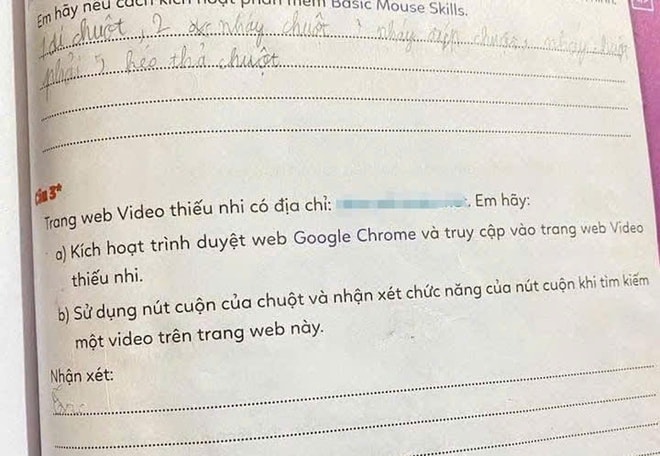 Em hãy nêu cách kích hoạt phần mềm Basic Mouse Skills.
1 di chuột, 2 nháy chuột, nháy chuột
phải 5 kéo thả chuột
Câu 3*
Trang web Video thiếu nhi có địa chỉ: . Em hãy:
a) Kích hoạt trình duyệt web Google Chrome và truy cập vào trang web Video
thiếu nhi.
b) Sử dụng nút cuộn của chuột và nhận xét chức năng của nút cuộn khi tìm kiếm
một video trên trang web này.
Nhận xét: